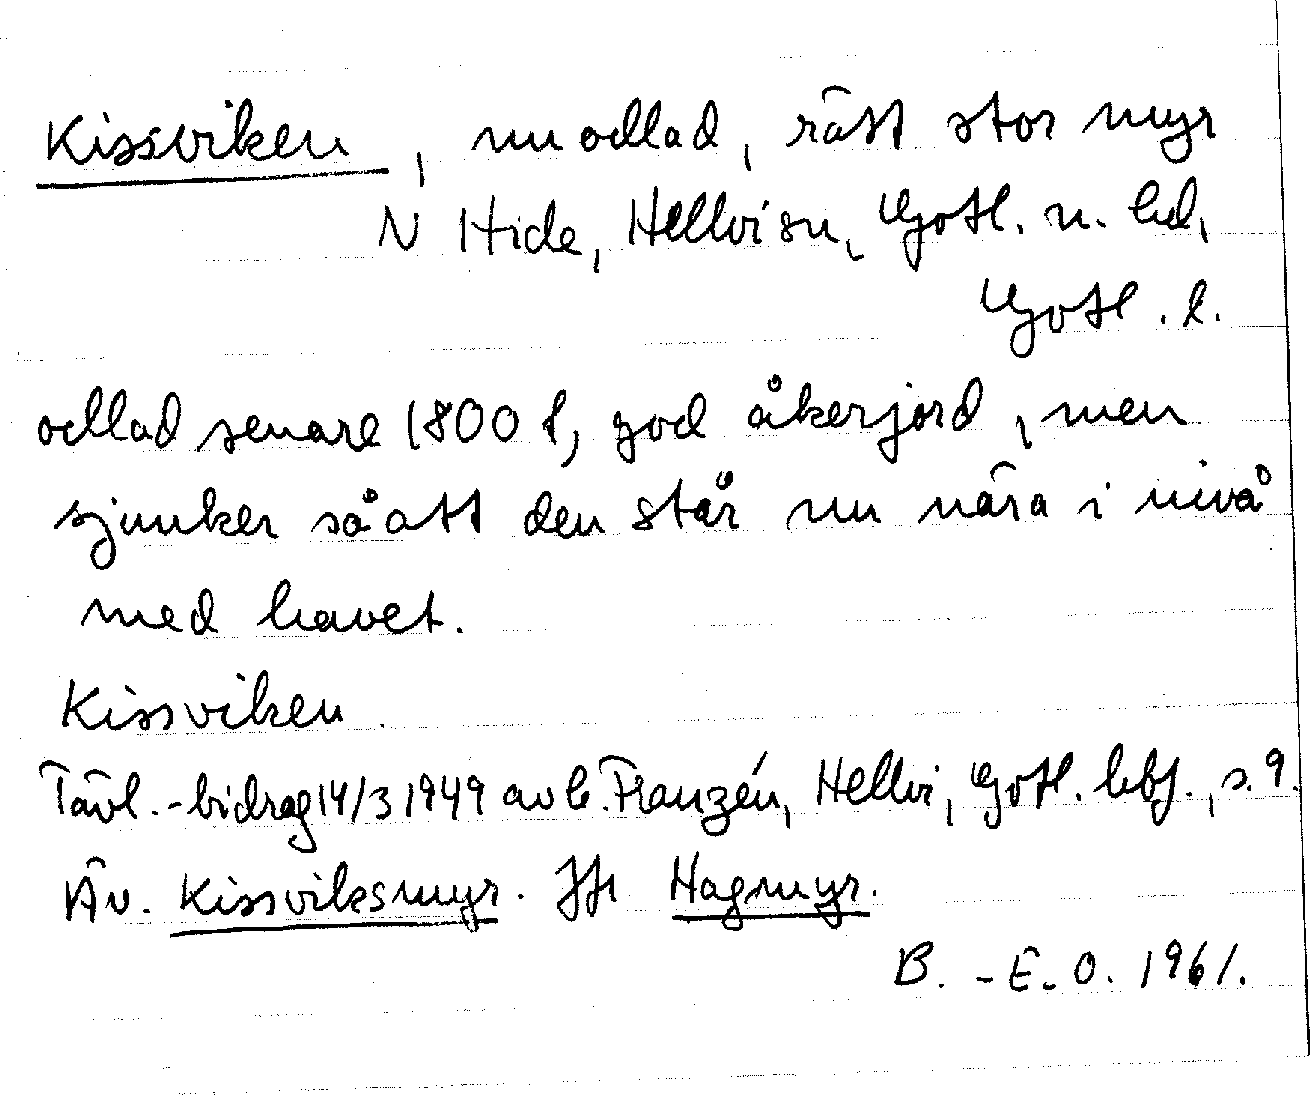 Kissviken, nu odlad, rätt stor myr
N Hide, Hellvi sn, Gotl. n. hd,
Gotl. l.
odlad senare 1800 t, god åkerjord, men
sjunker så att den står nu nära i nivå
med havet.
Kissviken.
Tävl.-bidrag 14/3 1949 av C. Franzén, Hellvi, Gotl. hbf., s. 9.
Äv. Kissviksmyr. Jfr Hagmyr.
B.-E. O. 1961.